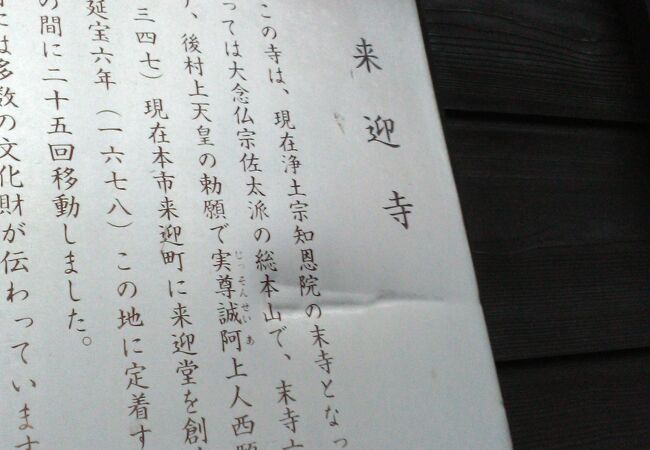 来迎寺
この寺は、現在浄土宗知恩院の末寺となっ
っては大念仏宗佐太派の総本山で、末寺
、後村上天皇の勅願で実尊誠阿上人西
じっそんせいあ
三四七）現在本市来迎町に来迎堂を創
延宝六年（一六七八）この地に定着す
の間に二十五回移動しました。
には多数の文化財が伝わっています